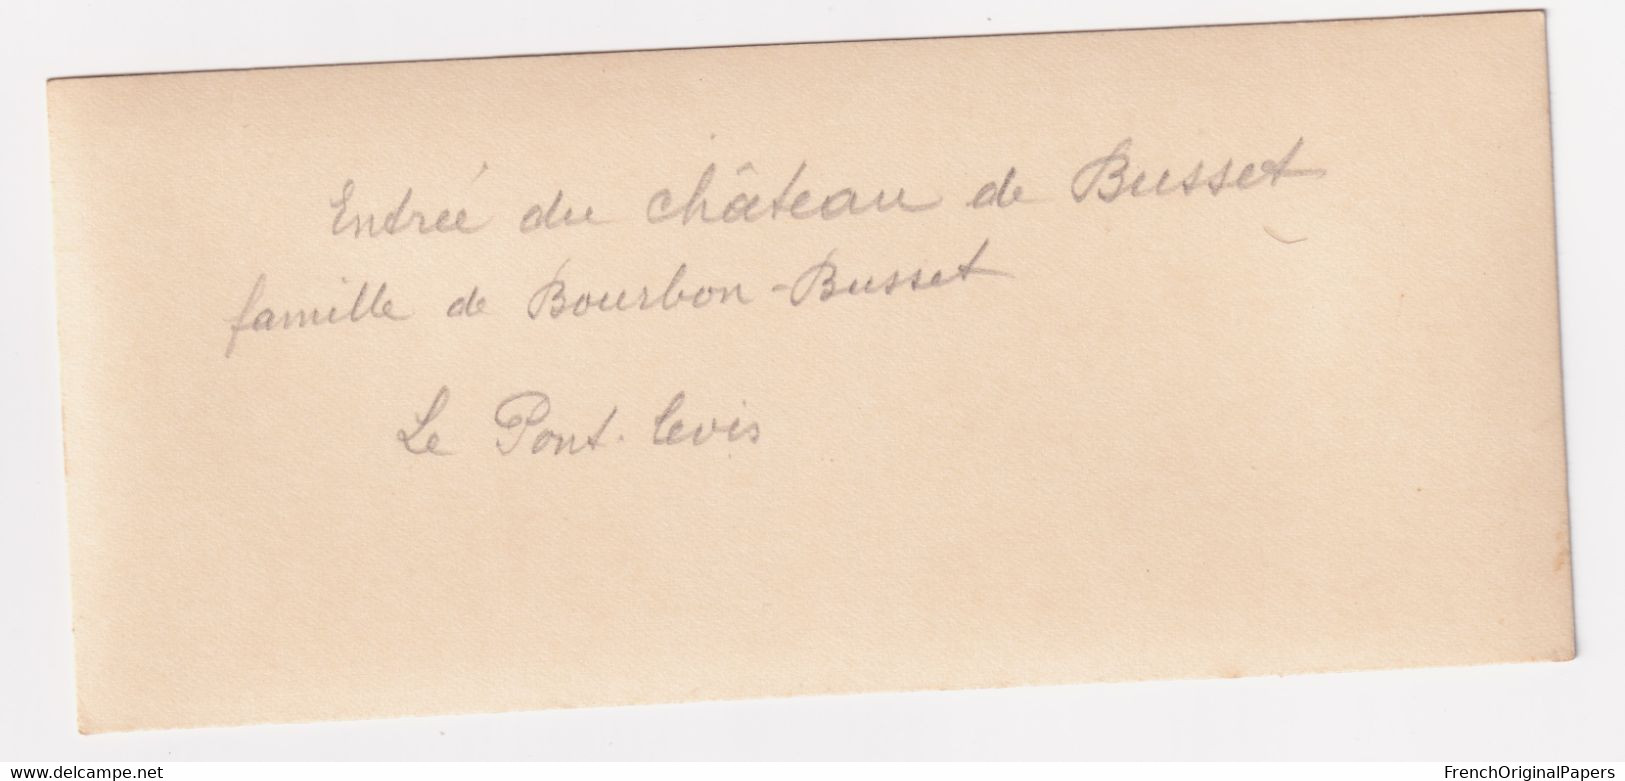 Entrée du château de Busset
famille de Bourbon-Busset
Le Pont-levis
FrenchOriginalPapers
www.delcampe.net